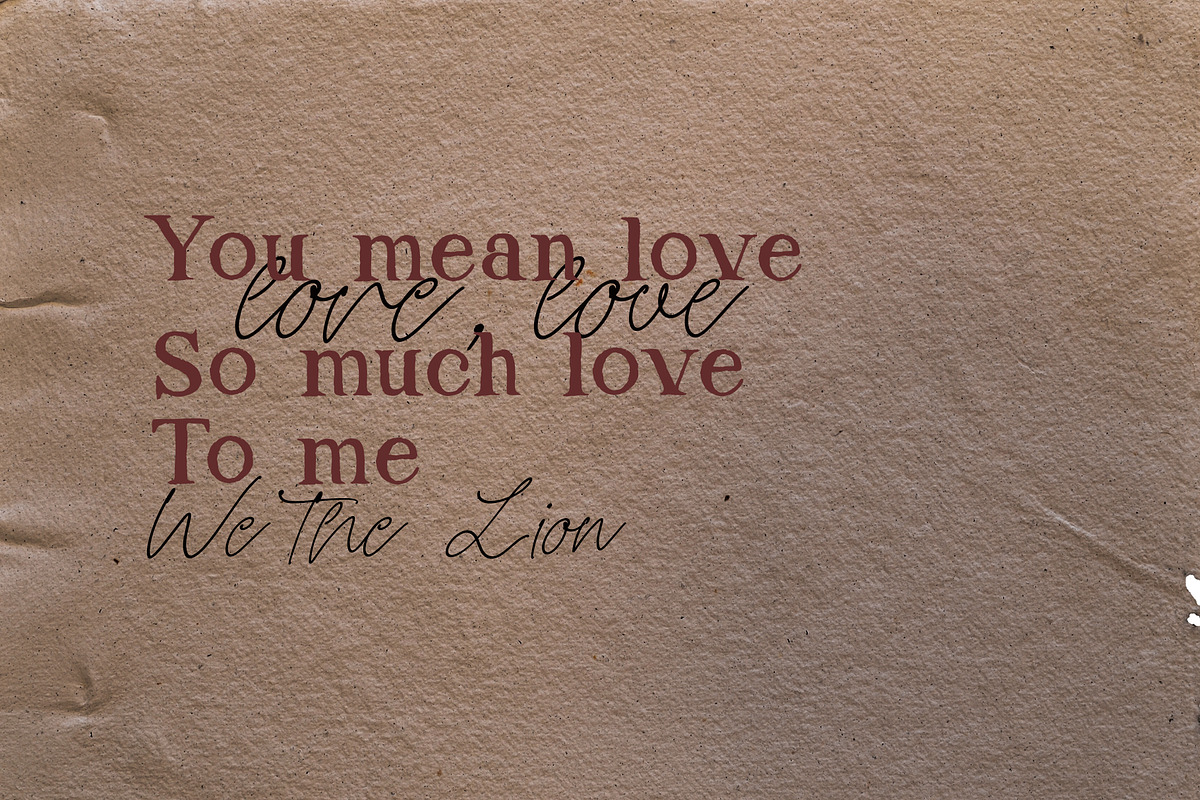 You mean love
love, love
So much love
To me
We The Lion